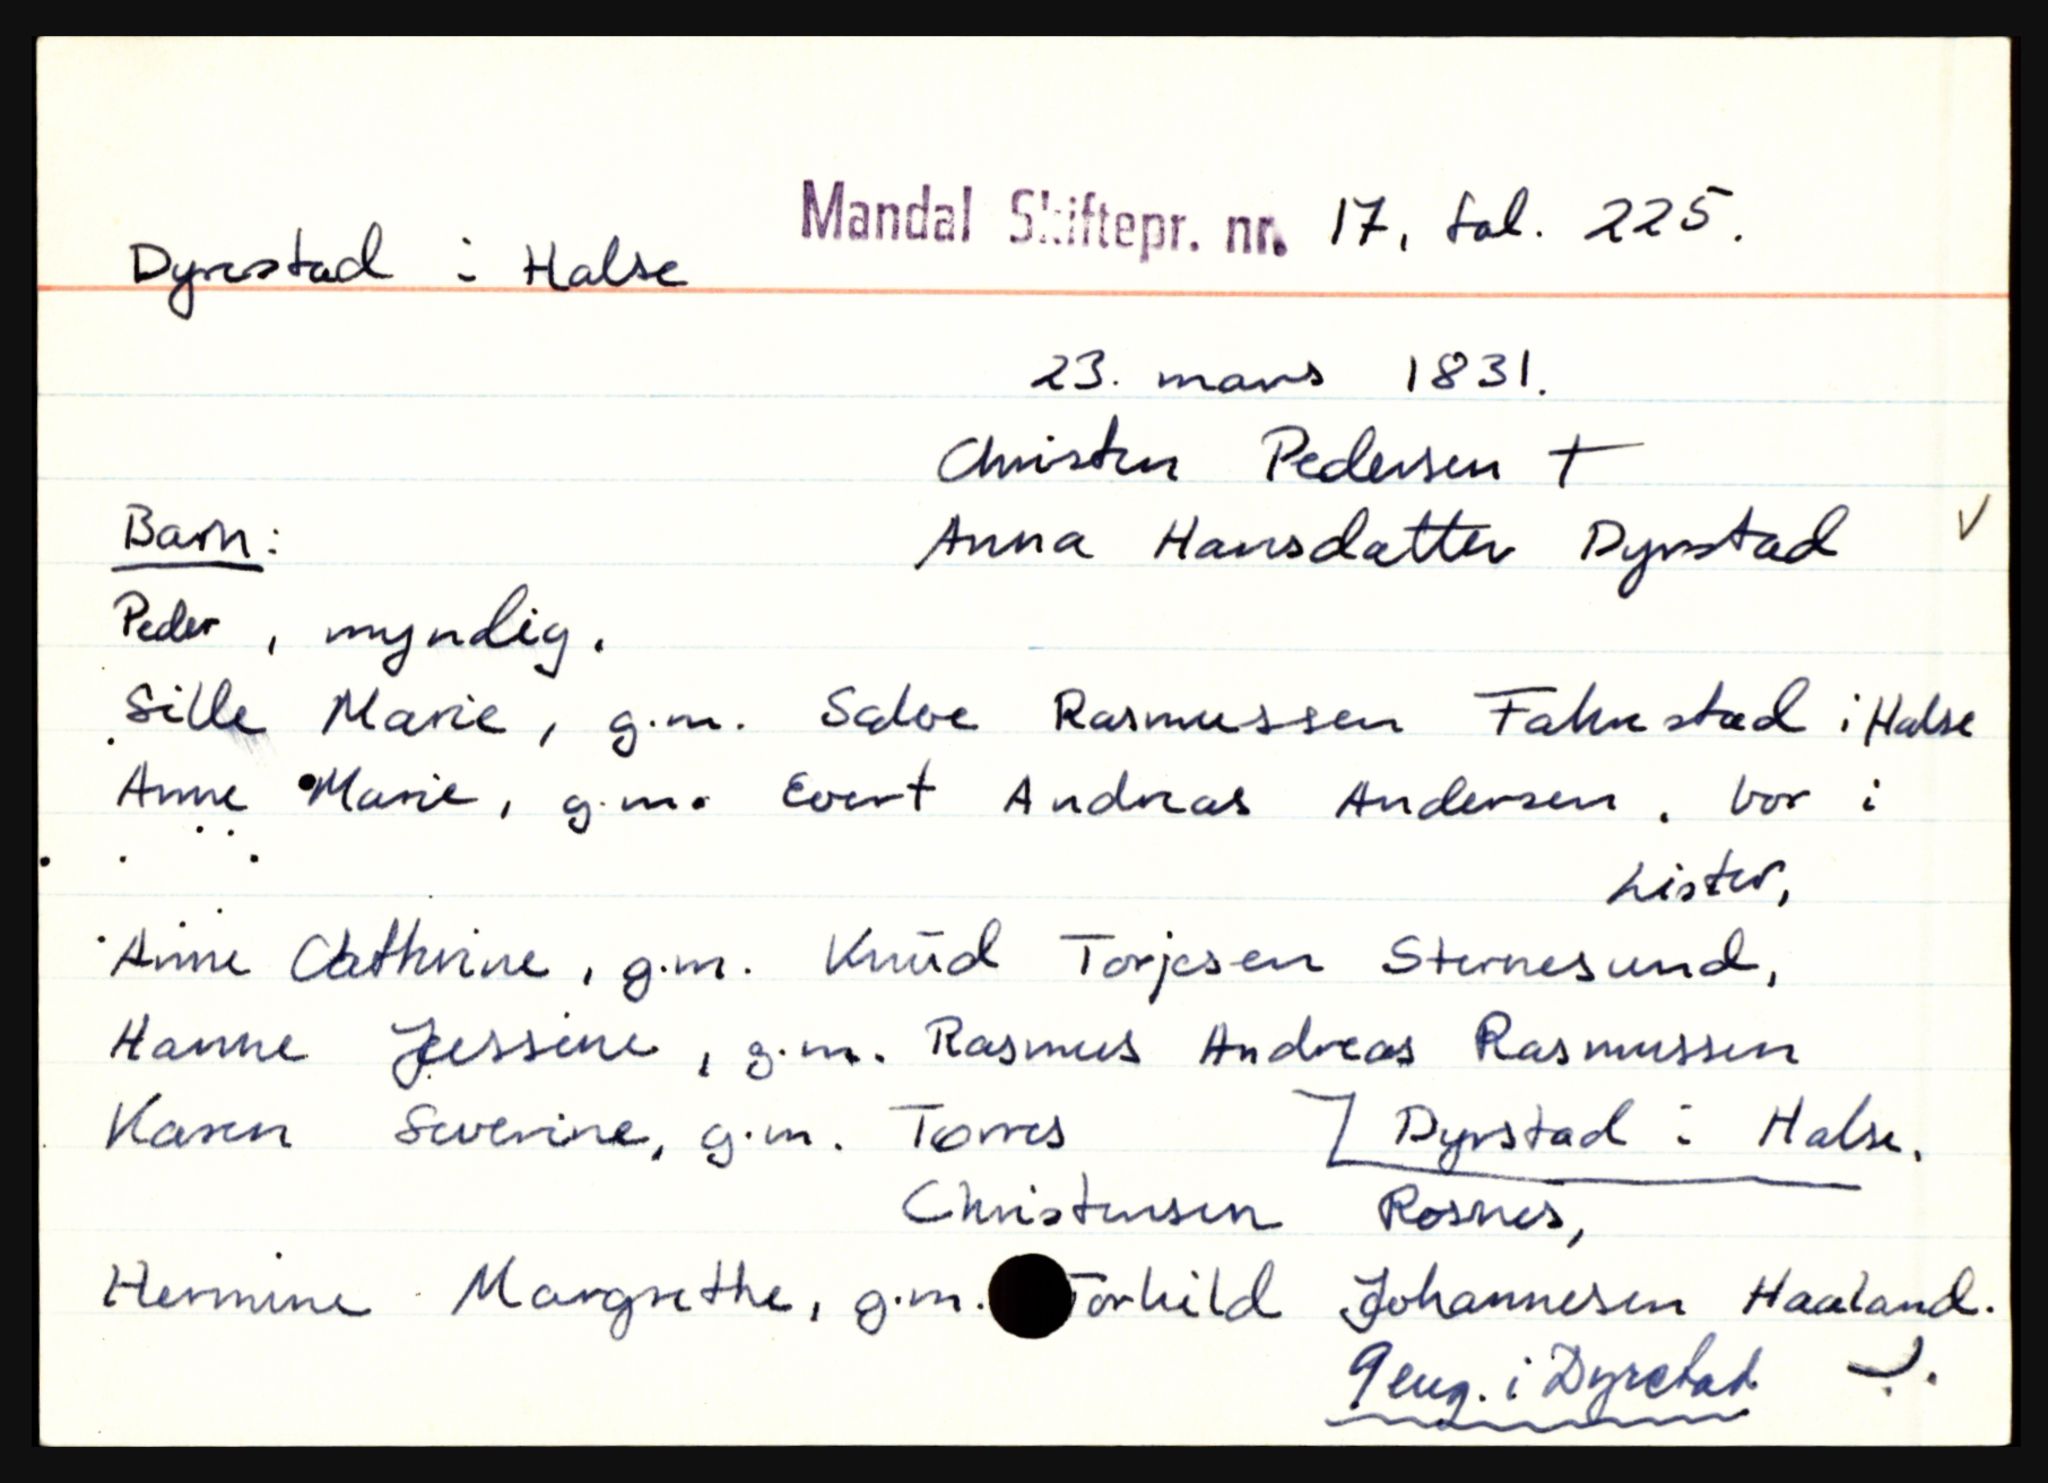 Mandal Skiftepr. nr. 17, fol. 225.
Dyrestad i Halse
23. mars 1831.
Christen Pedersen †
Barn:
Anna Hansdatter Dyrstad ✓
Peder, myndig.
Sille Marie, g.m. Salve Rasmussen Fahrestad i Halse
Anne Marie, g.m. Evert Andreas Andersen. bor i
Lister,
Anne Cathrine, g.m. Knud Torjesen Sternesund,
Hanne Jessine, g.m. Rasmus Andreas Rasmussen
Karen Severine, g.m. Torres Dyrstad i Halse.
Christensen Rosnes,
Hermine Margrethe, g.m. Torkild Johannesen Haaland.
9 eng. i Dyrestad